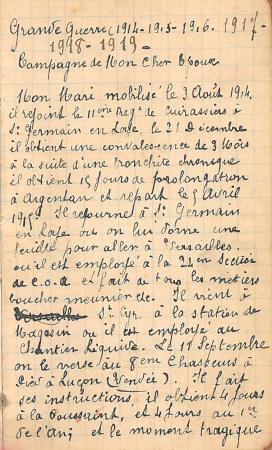 Grande Guerre (1914-1915-1916. 1917-
1918-1919-
Campagne de Mon Cher Epoux
Mon Mari mobilisé le 3 Août 1914,
il rejoint le 11eme Regt de Cuirassiers à
St Germain en Laye. le 21 Décembre
il obtient une convalescence de 3 Mois
à la suite d'une bronchite chronique
il obtient 15 jours de prolongation
à Argentan et repart le 5 Avril
1915. Il retourne à St Germain
en Laye où on lui donne une
feuille pour aller à Versailles.
où il est employé à la 22em Section
de C.O.A et fait de tous les métiers
boucher meunier etc. Il vient à
St Cyr. à la station de
Magasin où il est employé au
Chantier Liquide. Le 11 Septembre
on le verse au 8eme Chasseurs à
Pied à Luçon (Vendée). Il fait
ses instructions, il obtient 4 jours
à la Toussaint, et 4 jours au 1er
de l'An; et le moment tragique